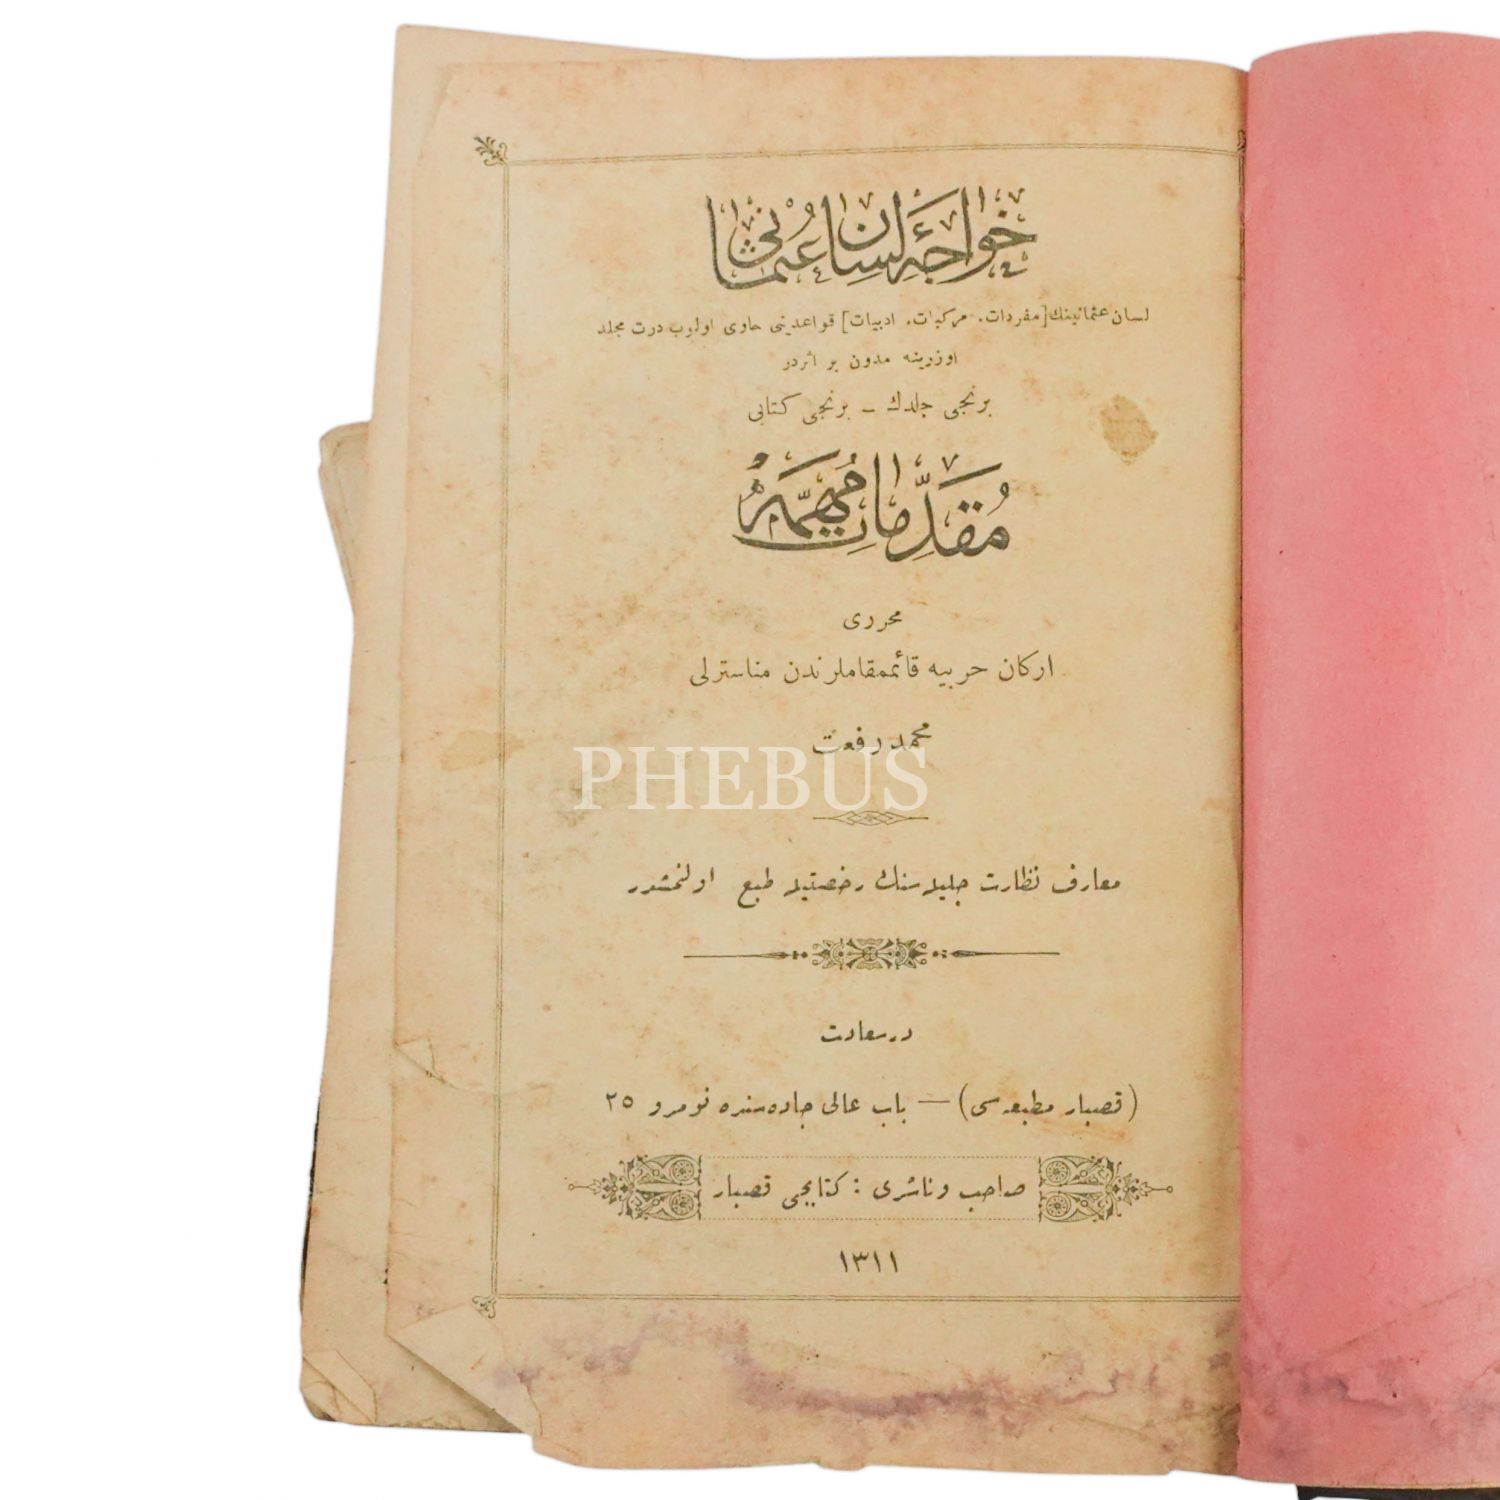 خواجۀ لسان عثمانی
لسان عثمانینك [مفردات. مركبات. ادبیات] قواعدینی حاوی اولوب درت مجلد
اوزرینه مدون بر اثردر
برنجی جلدك – برنجی كتابی
مُقَدِّمات مُهِمَّه
محرری
اركان حربیه قائممقاملرندن مناسترلی
محمد رفعت
PHEBUS
معارف نظارت جلیله سنك رخصتیله طبع اولنمشدر
درسعادت
(قصبار مطبعه سی) — باب عالی جاده سنده نومرو ٢٥
صاحب و ناشری : كتابجی قصبار
١٣١١